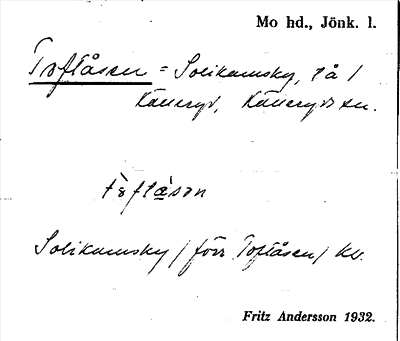 Mo hd., Jönk. l.
Toftåsen = Solikamsky, på /
Källeryd, Källeryds sn.
tòftåsən
Solikamsky / förr Toftåsen / kv.
Fritz Andersson 1932.